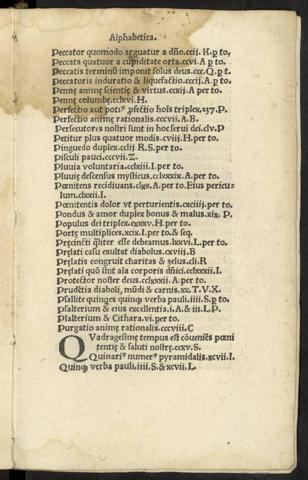 Alphabetica.
Peccator quomodo arguatur a dño.ccij.H.p to.
Peccata quatuor a cupiditate orta.ccvi.A p to.
Peccatis terminũ imponit solus deus.ccc.Q.p t.
Peccatoris induratio & liquefactio.cccij.A p to.
Pennę animę scientię & virtus.ccxij.A per to
Pennę columbę.cclxvi.H.
Perfectio aut poti⁹ ꝓfectio hoĩs triplex.237.P.
Perfectio animę rationalis.cccvii.A.B.
Persecutores nostri sunt in hoc serui dei.clv.P
Petitur plus quatuor modis.cviij.H per to.
Pinguedo duplex.cclij R.S.per to.
Pisculi pauci.cccvii.Z.
Pluuia voluntaria.cclxiii.I per to.
Pluuię descensus mysticus.cclxxxix.A per to.
Pœnitens recidiuans.clgx.A per to.Eius pericu
lum.clxxii.I.
Pœnitentis dolor vt perturientis.cxciiij.per to.
Pondus & amor duplex bonus & malus.xig.P.
Populus dei triplex.cxxxv.H.per to.
Portę multiplices.xcix.I per to.& seq.
Pręcincti q̃liter esse debeamus.lxxvi.L.per to.
Pręlati casu exultat diabolus.cxviij.B
Pręlatis congruit charitas & zelus.cli.R
Pręlati quõ sint aĩa corporis dñici.cclxxxii.I.
Protector noster deus.cclxxxii.A.per to.
Prudẽtia diaboli, mũdi & carnis.xx.T.V.X.
Psallite quinqes quinq; verba pauli.iiii.S.p to.
Psalterium & eius excellentia.i.A.& iii.L.P.
Psalterium & Cithara.vi.per to.
Purgatio animę rationalis.cccviii.C
Quadragesimę tempus est coueniẽs pœni
tentię & saluti nostrę.ccxv.S.
Quinari⁹ numer⁹ pyramidalis.xcvii.I.
Quinq; verba pauli.iiii.S.& xcvii.L.